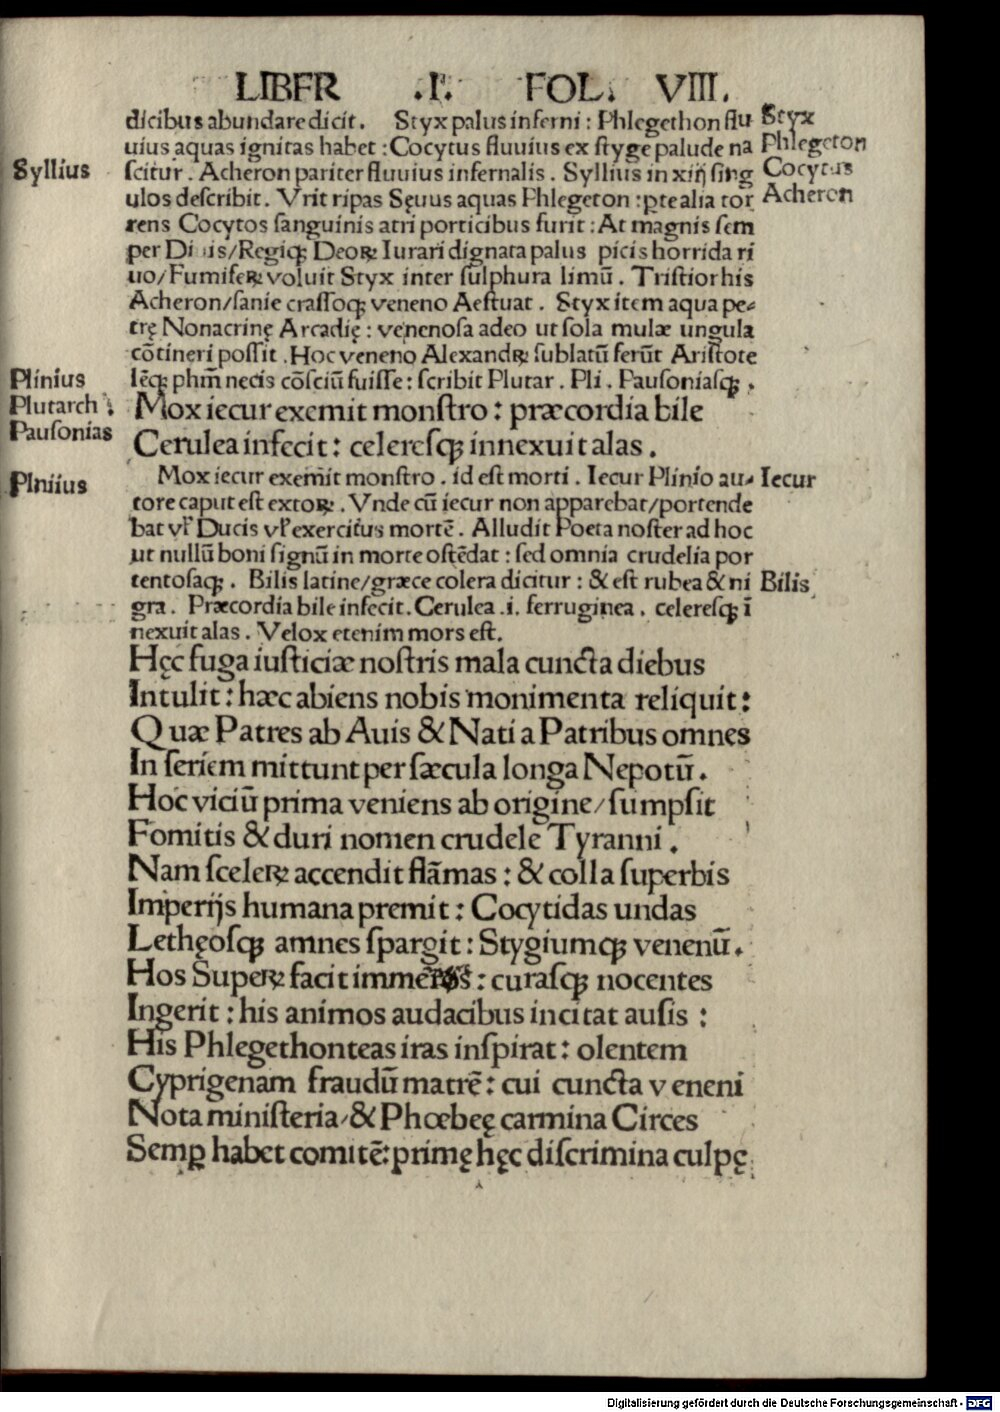 LIBER .I. FOL. VIII.
dicibus abundare dicit. Styx palus inferni : Phlegethon flu Styx
uius aquas ignitas habet : Cocytus fluuius ex ſtyge palude na Phlegeton
Syllius ſcitur . Acheron pariter fluuius infernalis . Syllius in xiij ſing Cocytus
ulos deſcribit . Vrit ripas Sęuus aquas Phlegeton : pte alia tor Acheron
rens Cocytos ſanguinis atri porticibus furit : At magnis ſem
per Diuis/Regiqꝫ Deoꝝ Iurari dignata palus picis horrida ri
uo/Fumifeꝝ voluit Styx inter ſulphura limū . Triſtior his
Acheron/ſanie craſſoqꝫ veneno Aeſtuat . Styx item aqua pe⸗
trę Nonacrinę Arcadię : venenoſa adeo ut ſola mulæ ungula
cōtineri poſſit . Hoc veneno Alexandꝝ ſublatū ferūt Ariſtote
Plinius lēqꝫ phm̄ necis cōſciū fuiſſe : ſcribit Plutar . Pli . Pauſoniaſqꝫ .
Plutarch Mox iecur exemit monſtro : præcordia bile
Pauſonias Cerulea infecit : celereſqꝫ innexuit alas .
Plniius Mox iecur exemit monſtro . id eſt morti . Iecur Plinio au⸗ Iecur
tore caput eſt extoꝝ . Vnde cū iecur non apparebat/portende
bat vl̕ Ducis vl̕ exercitus mortē . Alludit Poeta noſter ad hoc
ut nullū boni ſignū in morte oſtēdat : ſed omnia crudelia por
tentoſaqꝫ . Bilis latine/græce colera dicitur : & eſt rubea & ni Bilis
gra . Præcordia bile infecit . Cerulea .i. ferruginea . celereſqꝫ ī
nexuit alas . Velox etenim mors eſt.
Hęc fuga iuſticiæ noſtris mala cuncta diebus
Intulit : hæc abiens nobis monimenta reliquit :
Quæ Patres ab Auis & Nati a Patribus omnes
In ſeriem mittunt per ſæcula longa Nepotū .
Hoc viciū prima veniens ab origine/ſumpſit
Fomitis & duri nomen crudele Tyranni .
Nam ſceleꝝ accendit flāmas : & colla ſuperbis
Imperijs humana premit : Cocytidas undas
Lethęoſqꝫ amnes ſpargit : Stygiumqꝫ venenū .
Hos Supeꝝ facit : curaſqꝫ nocentes
Ingerit : his animos audacibus incitat auſis :
His Phlegethonteas iras inſpirat : olentem
Cyprigenam fraudū matrē : cui cuncta veneni
Nota miniſteria/& Phœbeę carmina Circes
Semꝑ habet comitē : primę hęc diſcrimina culpę
Digitalisierung gefördert durch die Deutsche Forschungsgemeinschaft - DFG